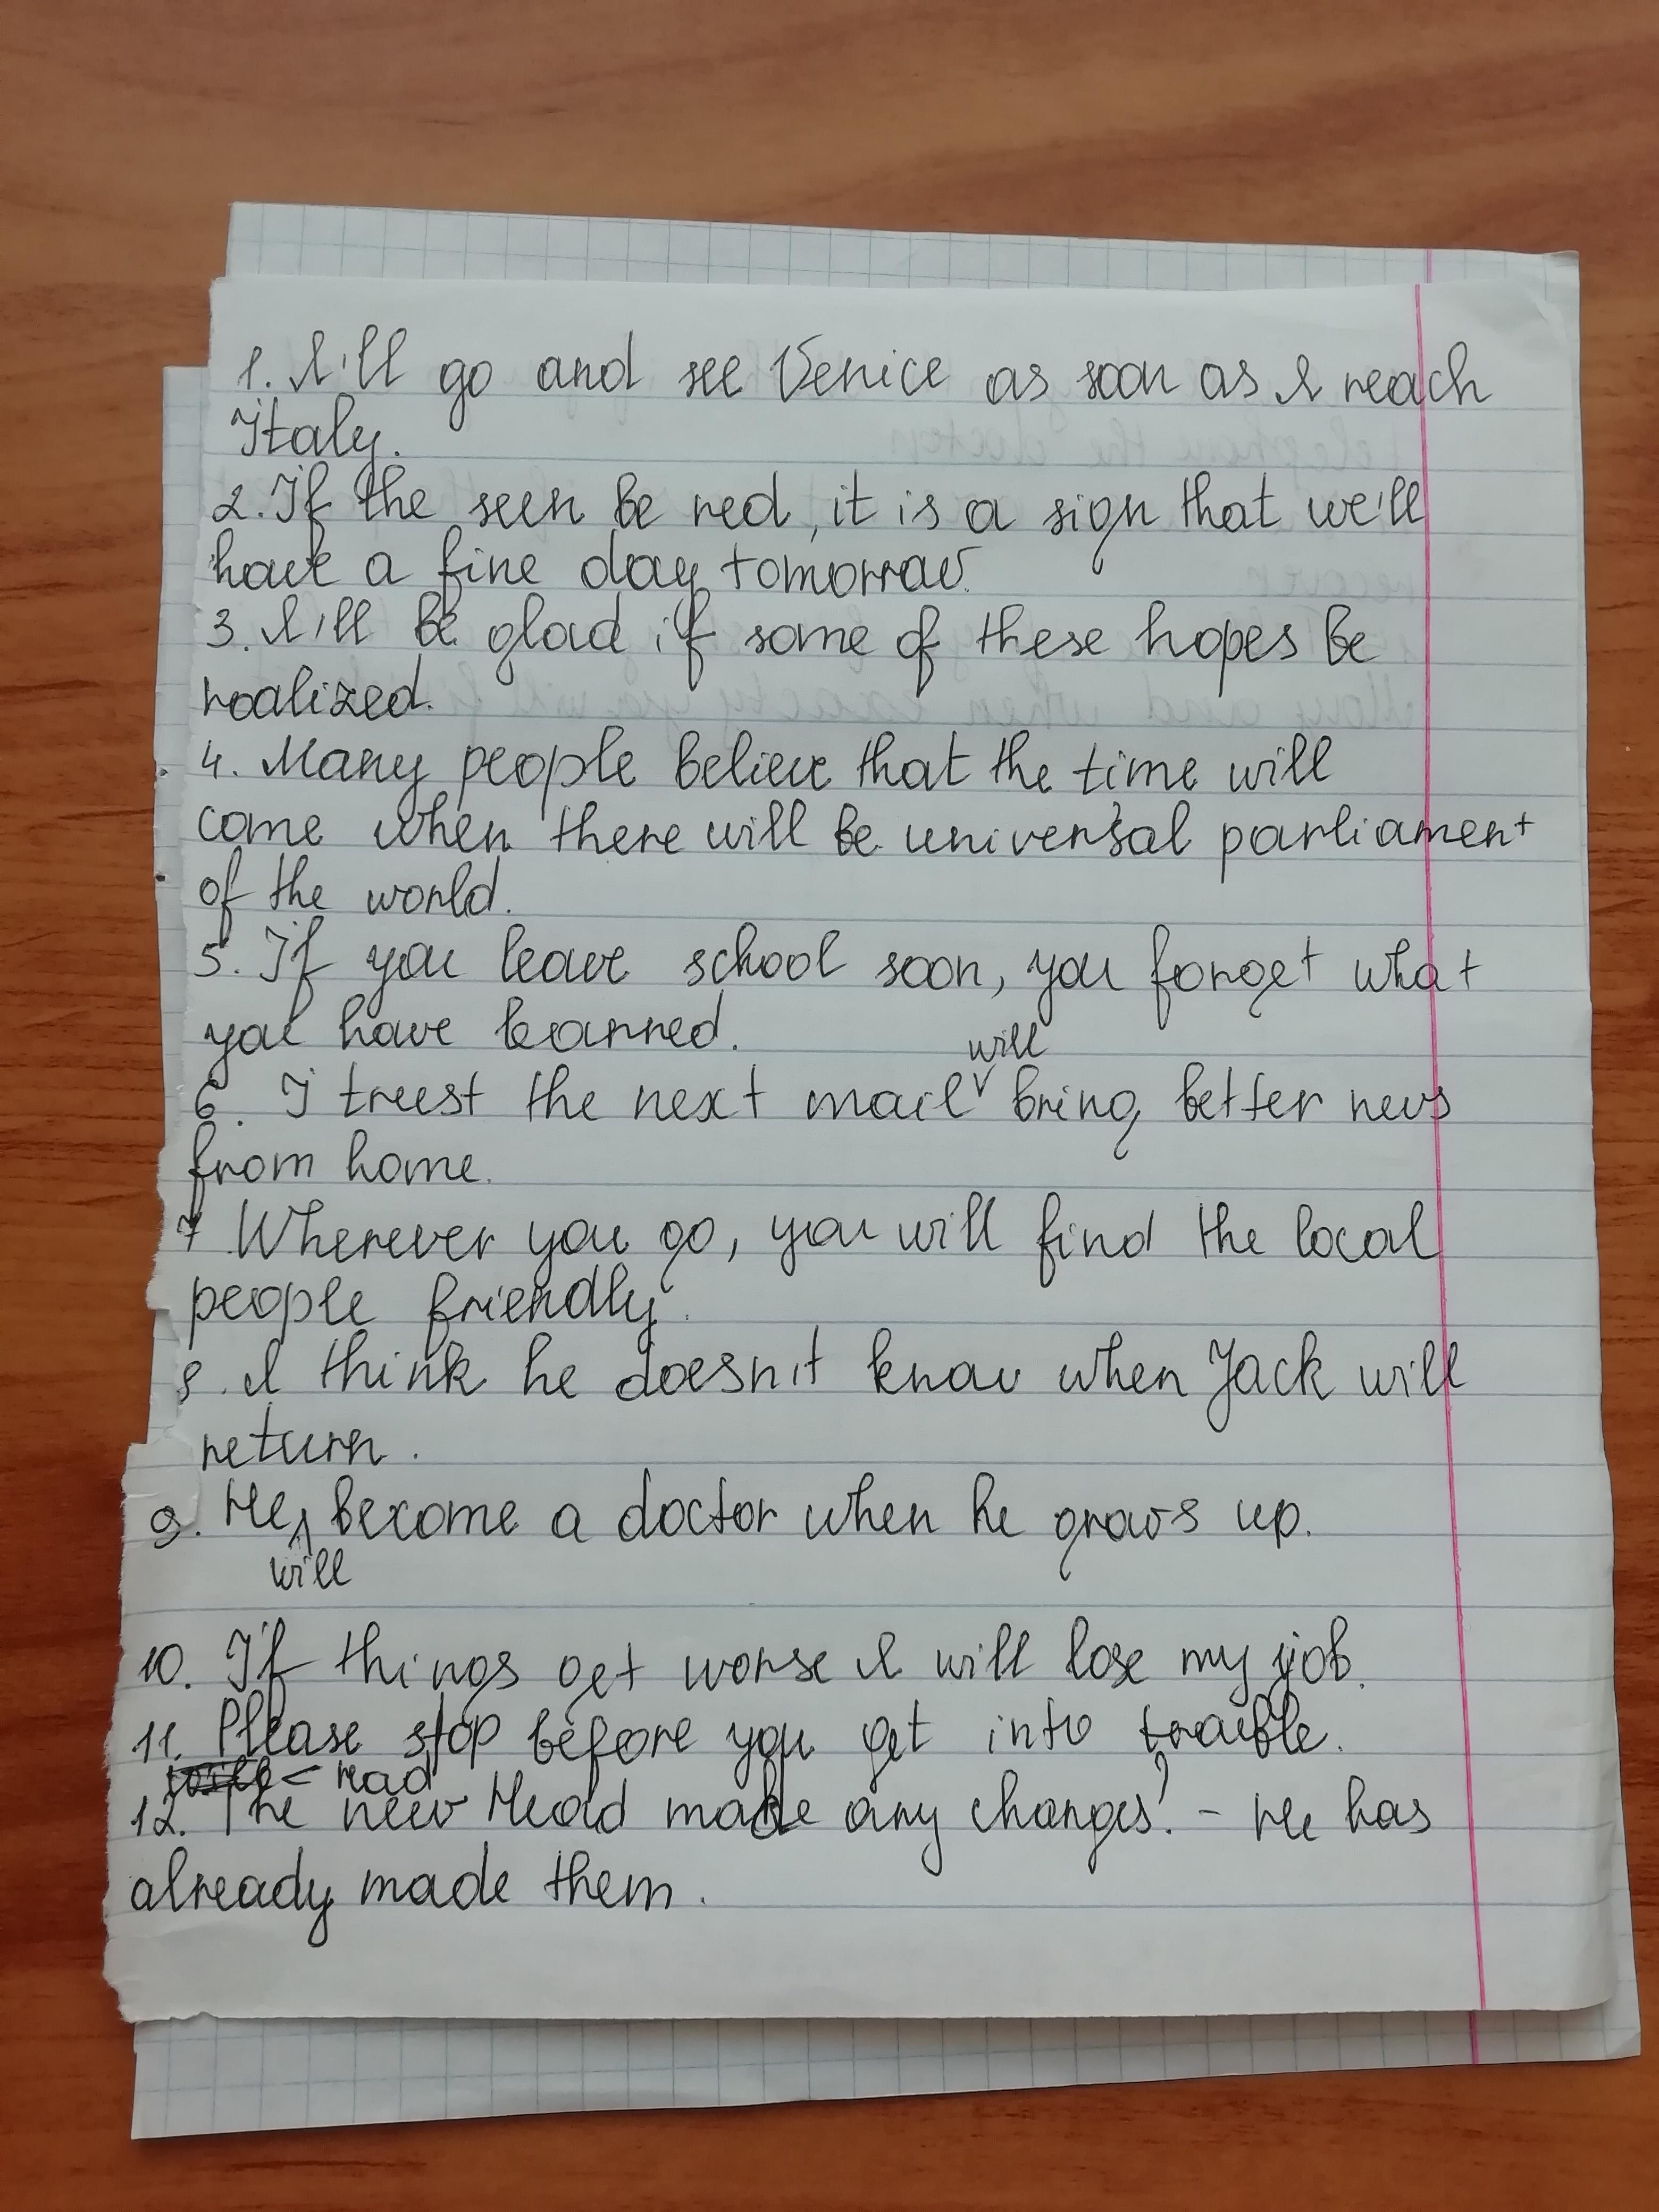 1. I'll go and see Venice as soon as I reach
Italy.
2. If the seen be red, it is a sign that we'll
have a fine day tomorrow.
3. I'll be glad if some of these hopes be
realized.
4. Many people believe that the time will
come when there will be universal parliament
of the world.
5. If you leave school soon, you forget what
you have learned.
will
6. I treest the next mail bring better news
from home.
7 Wherever you go, you will find the local
people friendly.
8. I think he doesn't know when Jack will
return.
9. He become a doctor when he grows up.
will
10. If things get worse I will lose my job.
11. Please stop before you get into trouble.
read
12. The new Head made any changes? - He has
already made them.